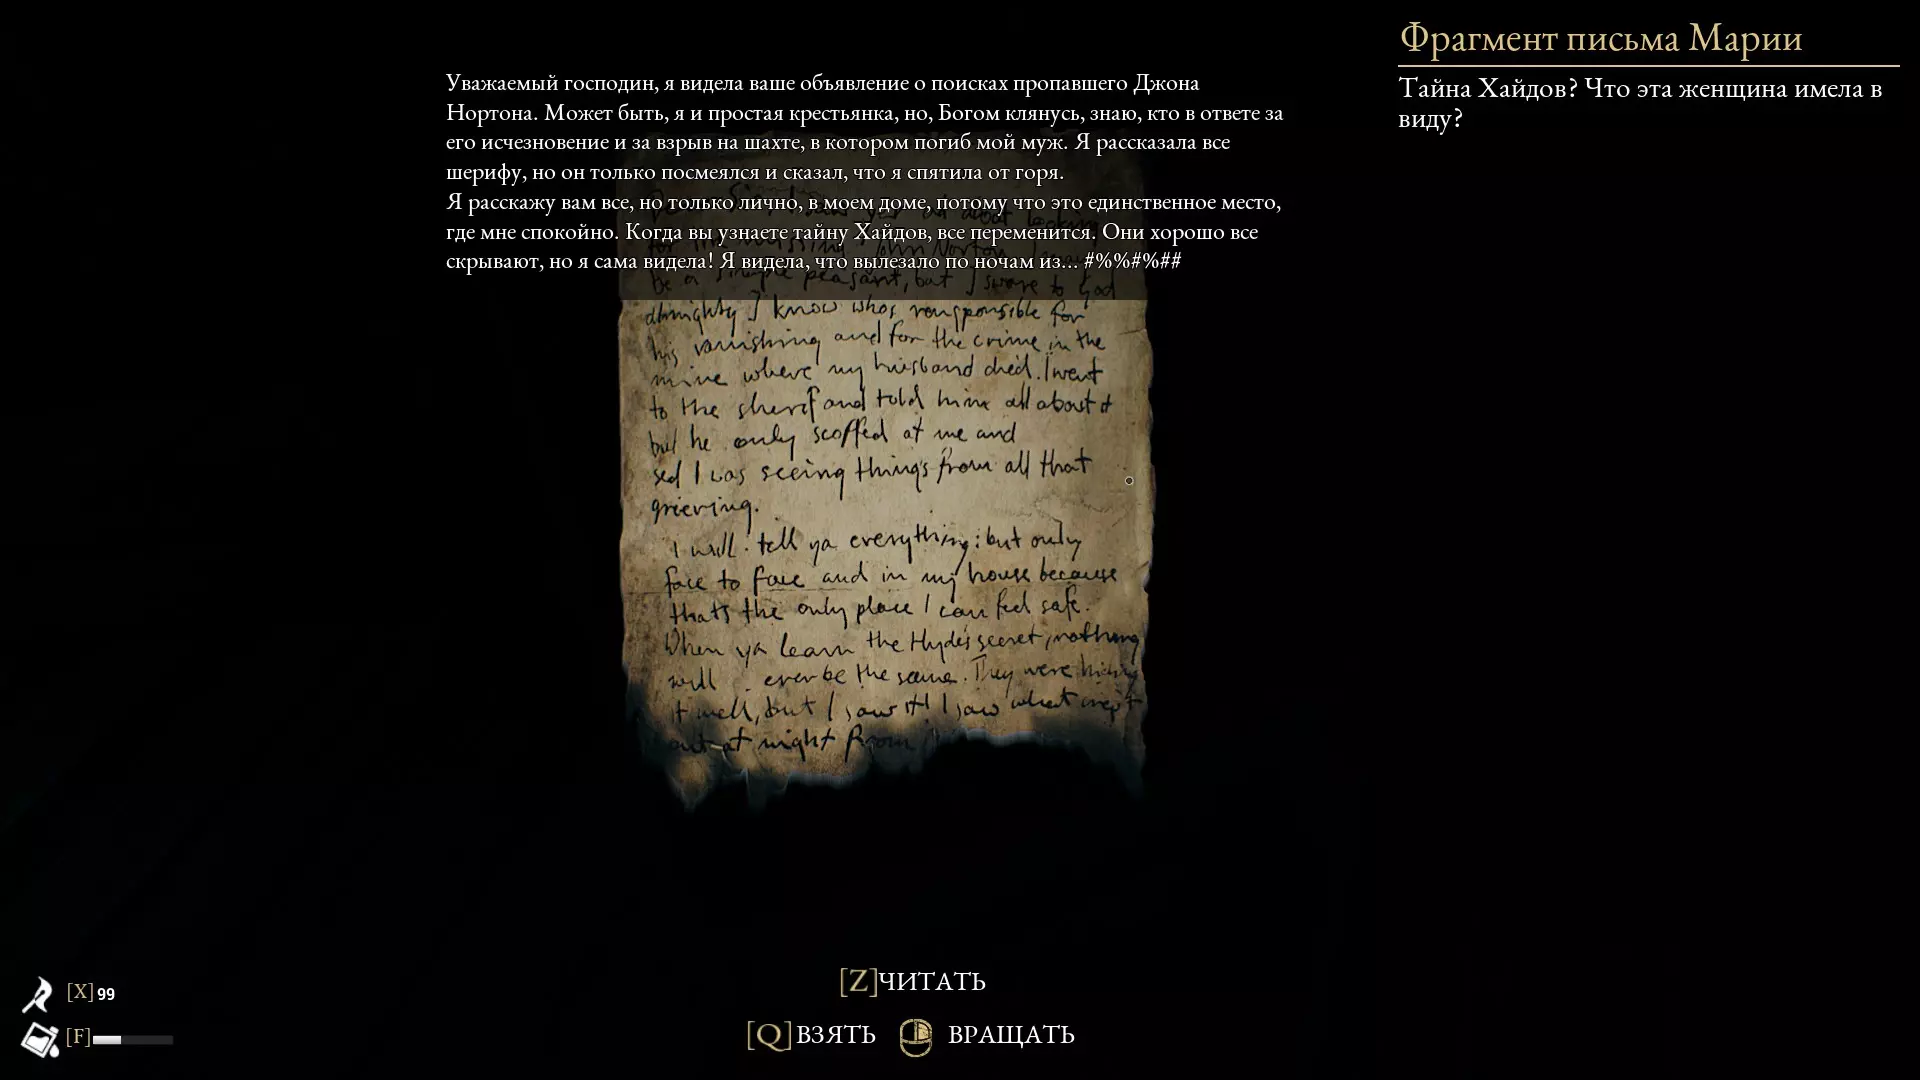 Фрагмент письма Марии
Тайна Хайдов? Что эта женщина имела в
виду?
Уважаемый господин, я видела ваше объявление о поисках пропавшего Джона
Нортона. Может быть, я и простая крестьянка, но, Богом клянусь, знаю, кто в ответе за
его исчезновение и за взрыв на шахте, в котором погиб мой муж. Я рассказала все
шерифу, но он только посмеялся и сказал, что я спятила от горя.
Я расскажу вам все, но только лично, в моем доме, потому что это единственное место,
где мне спокойно. Когда вы узнаете тайну Хайдов, все переменится. Они хорошо все
скрывают, но я сама видела! Я видела, что вылезало по ночам из... #%%#%##
be a simple peasant, but I swore to God
almighty I know whos rensponsible for
his vanishing and for the crime in the
mine where my husband died. I went
to the sherif and told him all about it
but he only scoffed at me and
sed I was seeing things from all that
grieving.
I will tell ya everything; but only
face to face and in my house because
thats the only place I can feel safe.
When ya learn the Hydes secret, nothing
will ever be the same. They were hiding
it well, but I saw it! I saw what crept
out at night from
[Z]ЧИТАТЬ
[Q]ВЗЯТЬ ВРАЩАТЬ
[X] 99
[F]